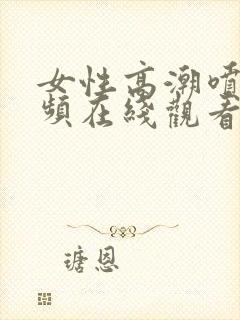 女性高潮噴
頻在綫觀看
瑭恩